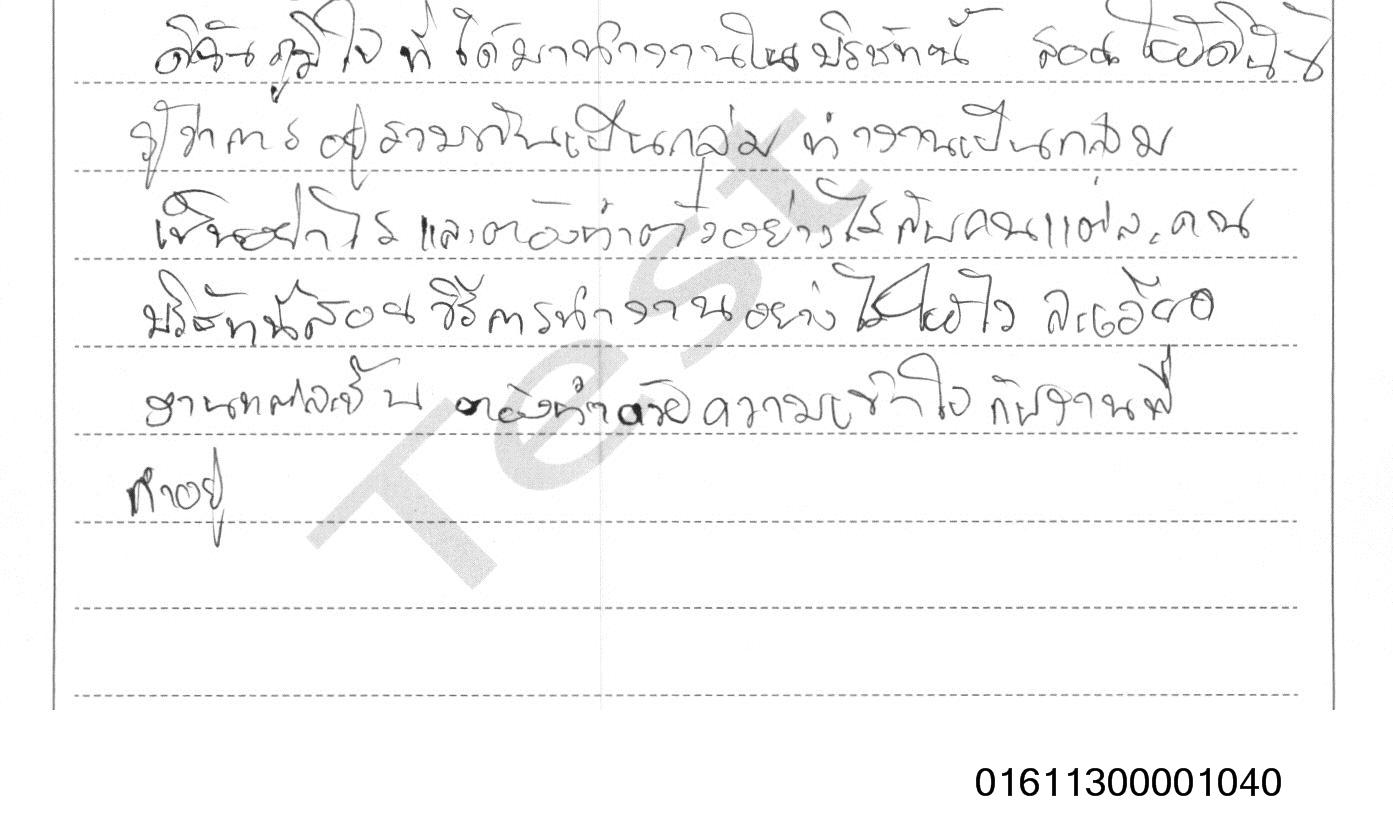 ดิฉันภูมิใจที่ได้มาทำงานในบริษัทนี้ สอนให้ดิฉัน
รู้ว่าการอยู่รวมกันเป็นกลุ่ม ทำงานเป็นกลุ่ม
เป็นอย่าไร และต้องทำตัวอย่างไรกับคนแต่ละคน
บริษัทนี้สอน วิธีการทำงานอย่างไร ละเอียด
งานแต่ละชิ้น ต้องทำด้วยความเข้าใจ กับงานที่
ทำอยู่
Test
01611300001040